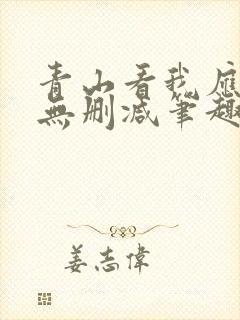 青山看我應
無刪減筆趣
姜志偉